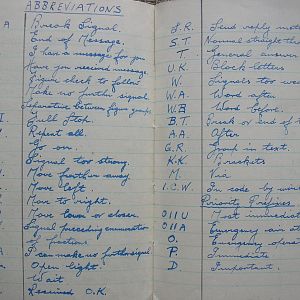 ABBREVIATIONS
A Break Signal.
End of Message.
I have a message for you.
Have you received message.
check to follow.
Make no further signal.
Separative between figure groups.
Full Stop.
Repeat all.
Go on.
Signal too strong.
Move further away.
Move left.
Move to right.
Move lower or closer.
Signal preceding enumeration
of fractions.
I can make no further signal
Open light.
Wait
Received O.K.
S.R. Send reply
S.T Normal straight
T General answer
U.K. Block letters
W. Signals too
W.A Word after
W.B Word before.
B.T. Break or end of
A.A. After
G.R. Group in text.
K.K. Brackets
M. Via
I.C.W. In code by
Priority Prefixes.
O11U Most immediate
O11A Emergency
O. Emergency
P. Immediate
D Important.